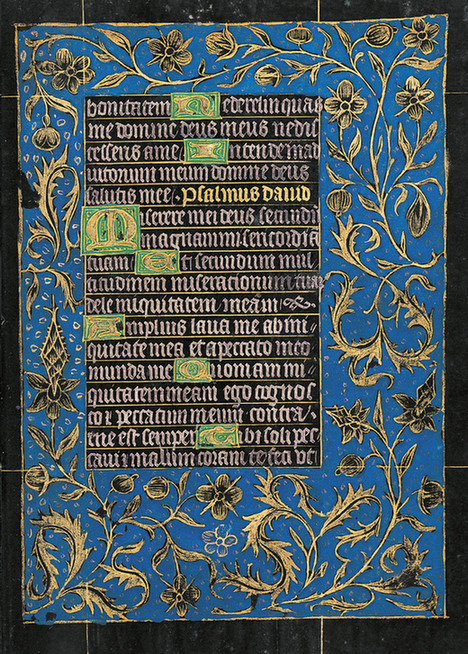 bonitatem Ne derelinquas
me domine deus meus ne dis
cesseris a me Intende in ad
iutorium meum domine deus
salutis mee Psalmus dauid
Miserere mei deus secundū
magnam misericordiā
tuam Et secundum mul
titudinem miseracionum
dele iniquitatem meam
Amplius laua me ab ini
quitate mea et a peccato meo
munda me Quoniam ini
quitatem meam ego cognos
co ⁊ peccatum meum contra
me est semper Tibi soli pec
caui ⁊ malum coram te feci vt